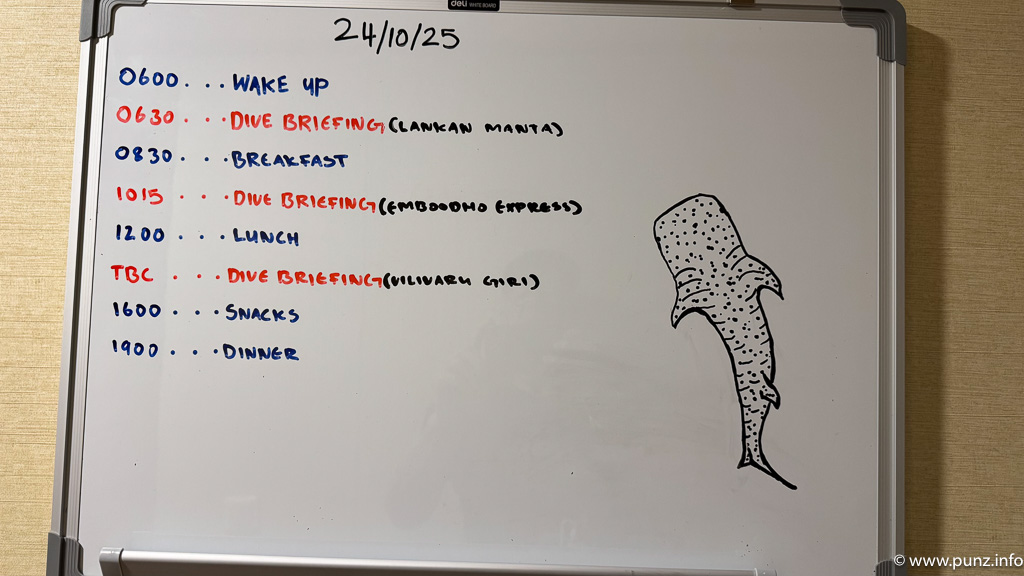 deli WHITE BOARD
24/10/25
0600... WAKE UP
0630... DIVE BRIEFING (LANKAN MANTA)
0830... BREAKFAST
1015... DIVE BRIEFING (EMBOODHO EXPRESS)
1200... LUNCH
TBC ... DIVE BRIEFING (VILIVARU GIRI)
1600... SNACKS
1900... DINNER
© www.punz.info